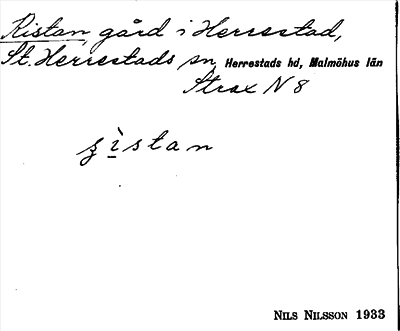 Ristan, gård i Herrestad,
St. Herrestads sn, Herrestads hd, Malmöhus län
Strax N 8
ʒ̀istan
NILS NILSSON 1933